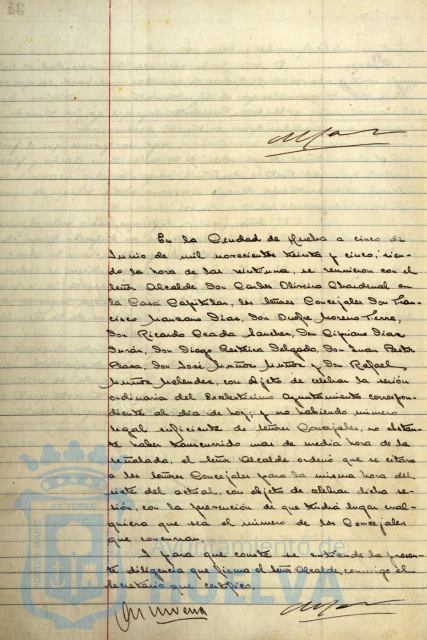 En la Ciudad de Huelva a cinco de
Junio de mil novecientos treinta y cinco, sien-
do la hora de las veintiuna, se reunieron con el
Señor Alcalde Don Carlos Oliveira Chardenal en
la Casa Capitular, los Señores Concejales Don Fran-
cisco Manzano Dias, Don Moreno
Don Ricardo Ceada Sanchez, Don Cipriano Dias
Durán, Don Diego Delgado, Don Juan
Don José Muñoz Muñoz y Don Rafael
Muñoz Melendez, con objeto de celebrar la sesión
ordinaria del Excelentisimo Ayuntamiento correspon-
diente al dia de hoy; y no habiendo número
legal suficiente de Señores Concejales, no obstan-
te haber transcurrido mas de media hora de la
señalada, el Señor Alcalde ordenó que se citara
a los Señores Concejales para la misma hora del
siete del actual, con objeto de celebrar dicha se-
sión, con la prevención de que tendrá lugar cual-
quiera que sea el número de los Concejales
que concurran.
Y para que conste se extiende la presen-
te diligencia que firma el Señor Alcalde, conmigo el
Secretario que certifico.
Ayuntamiento de
HUELVA